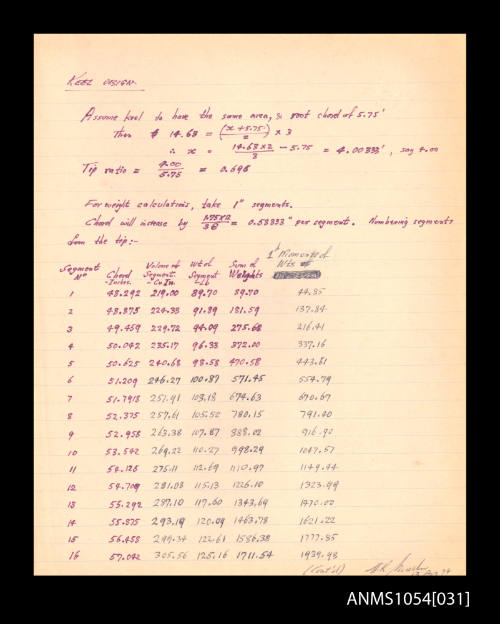 KEEL DESIGN
Assume keel to have the same area, & root chord of 5.75'
Then 14.63 = (x + 5.75)/2 x 3
∴ x = 14.63x2/3 - 5.75 = 4.00333', say 4.00
Tip ratio = 4.00/5.75 = 0.696
For weight calculations, take 1" segments.
Chord will increase by 1.75x12/36 = 0.58333" per segment. Numbering segments
from the tip:-
Segment No Chord -Inches. Volume of Segment -Cu In. Wt of Segment -Lb Sum of Weights 1st Moments of Wts
1 48.292 219.00 89.70 89.70 44.85
2 48.875 224.33 91.89 181.59 137.84
3 49.459 229.72 94.09 275.68 216.41
4 50.042 235.17 96.33 372.00 337.16
5 50.625 240.68 98.58 470.58 443.61
6 51.209 246.27 100.87 571.45 554.79
7 51.7918 251.91 103.18 674.63 670.67
8 52.375 257.61 105.52 780.15 791.40
9 52.958 263.38 107.87 888.02 916.90
10 53.542 269.22 110.27 998.29 1047.57
11 54.125 275.11 112.69 1110.97 1149.44
12 54.709 281.08 115.13 1226.10 1323.99
13 55.292 287.10 117.60 1343.69 1470.00
14 55.875 293.19 120.09 1463.78 1621.22
15 56.458 299.34 122.61 1586.38 1777.85
16 57.042 305.56 125.16 1711.54 1939.98
(Cont'd)
ANMS1054[031]